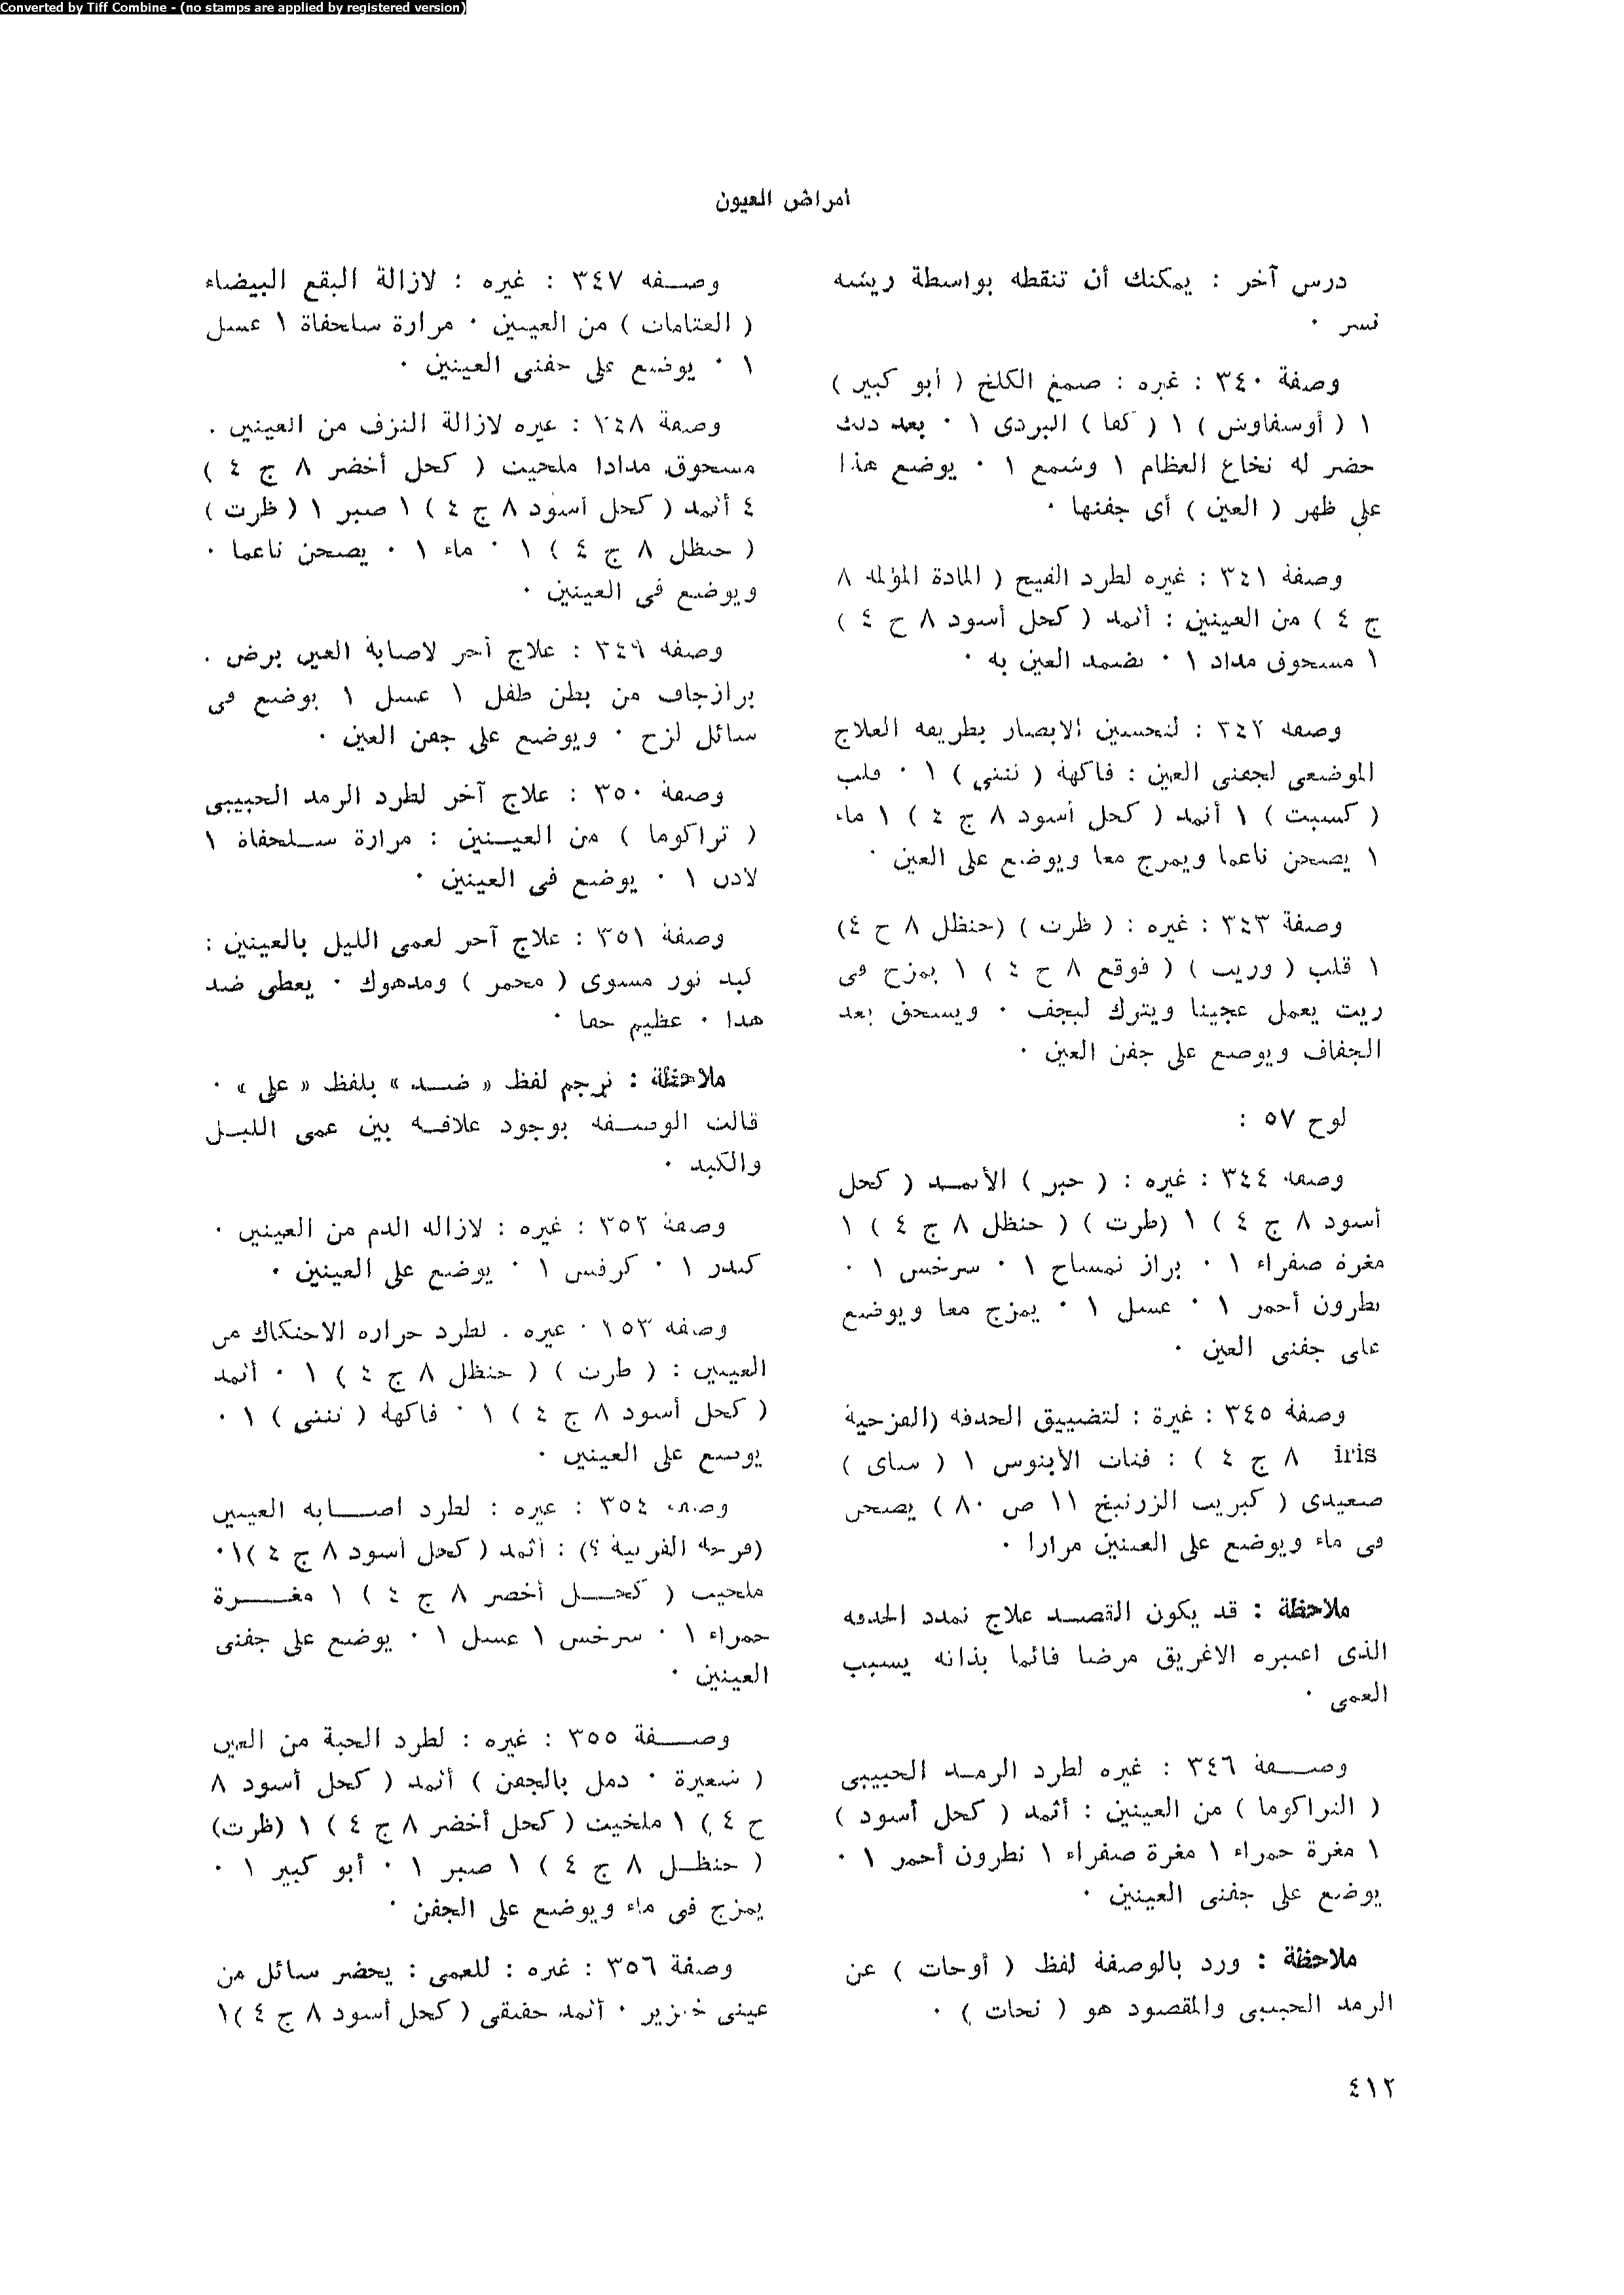 Converted by Tiff Combine - (no stamps are applied by registered version)
أمراض العيون
درس آخر : يمكنك أن تنقطه بواسطة ريشه
نسر ٠
وصفة ٣٤٠ : غيره : صمغ الكلخ ( أبو كبير )
١ ( أوسفاوش ) ١ ( كفا ) البردى ١ ٠ بعد ذلك
حضر له نخاع العظام ١ وشمع ١ ٠ يوضع هذا
على ظهر ( العين ) أى جفنها ٠
وصفة ٣٤١ : غيره لطرد القيح ( المادة المؤلمه ٨
ج ٤ ) من العينين : أثمد ( كحل أسود ٨ ج ٤ )
١ مسحوق مداد ١ ٠ تضمد العين به ٠
وصفه ٣٤٢ : لتحسين الابصار بطريقه العلاج
الموضعى لجفنى العين : فاكهة ( ننتى ) ١ ٠ قلب
( كسبت ) ١ أثمد ( كحل أسود ٨ ج ٤ ) ١ ماء
١ يصحن ناعما ويمزج معا ويوضع على العين ٠
وصفة ٣٤٣ : غيره : ( ظرت ) (حنظل ٨ ج ٤)
١ قلب ( وريت ) ( قوقع ٨ ج ٤ ) ١ يمزج فى
زيت يعمل عجينا ويترك ليجف ٠ ويسحق بعد
الجفاف ويوضع على جفن العين ٠
لوح ٥٧ :
وصفه ٣٤٤ : غيره : ( حبر ) الأثمد ( كحل
أسود ٨ ج ٤ ) ١ (ظرت ) ( حنظل ٨ ج ٤ ) ١
مغرة صفراء ١ ٠ براز تمساح ١ ٠ سرخس ١ ٠
نطرون أحمر ١ ٠ عسل ١ ٠ يمزج معا ويوضع
على جفنى العين ٠
وصفة ٣٤٥ : غيرة : لتضييق الحدقه (القزحية
iris ٨ ج ٤ ) : فتات الأبنوس ١ ( ساى )
صعيدى ( كبريت الزرنيخ ١١ ص ٨٠ ) يصحن
فى ماء ويوضع على العينين مرارا ٠
ملاحظة : قد يكون القصد علاج تمدد الحدقه
الذى اعتبره الاغريق مرضا قائما بذاته يسبب
العمى ٠
وصفة ٣٤٦ : غيره لطرد الرمد الحبيبى
( التراكوما ) من العينين : أثمد ( كحل أسود )
١ مغرة حمراء ١ مغرة صفراء ١ نطرون أحمر ١ ٠
يوضع على جفنى العينين ٠
ملاحظة : ورد بالوصفة لفظ ( أوحات ) عن
الرمد الحبيبى والمقصود هو ( نحات ) ٠
وصفه ٣٤٧ : غيره : لازالة البقع البيضاء
( العتامات ) من العينين ٠ مرارة سلحفاة ١ عسل
١ ٠ يوضع على جفنى العينين ٠
وصفة ٣٤٨ : غيره لازالة النزف من العينين .
مسحوق مدادا ملخيت ( كحل أخضر ٨ ج ٤ )
٤ أثمد ( كحل أسود ٨ ج ٤ ) ١ صبر ١ ( ظرت )
( حنظل ٨ ج ٤ ) ١ ٠ ماء ١ ٠ يصحن ناعما ٠
ويوضع فى العينين ٠
وصفه ٣٤٩ : علاج آخر لاصابة العين برض .
براز جاف من بطن طفل ١ عسل ١ يوضع فى
سائل لزج ٠ ويوضع على جفن العين ٠
وصفة ٣٥٠ : علاج آخر لطرد الرمد الحبيبى
( تراكوما ) من العينين : مرارة سلحفاة ١
لادن ١ ٠ يوضع فى العينين ٠
وصفة ٣٥١ : علاج آخر لعمى الليل بالعينين :
كبد ثور مشوى ( محمر ) ومدهوك ٠ يعطى ضد
هذا ٠ عظيم حقا ٠
ملاحظة : نرجم لفظ « ضد » بلفظ « على » ٠
قالت الوصفه بوجود علاقه بين عمى الليل
والكبد ٠
وصفة ٣٥٢ : غيره : لازاله الدم من العينين ٠
كندر ١ ٠ كرفس ١ ٠ يوضع على العينين ٠
وصفه ٣٥٣ ٠ غيره . لطرد حراره الاحتكاك من
العينين : ( ظرت ) ( حنظل ٨ ج ٤ ) ١ ٠ أثمد
( كحل أسود ٨ ج ٤ ) ١ ٠ فاكهة ( ننتى ) ١ ٠
يوضع على العينين ٠
وصفه ٣٥٤ : غيره : لطرد اصابه العينين
(قرحة القرنية ؟) : أثمد ( كحل أسود ٨ ج ٤ )١٠
ملخيت ( كحل أخضر ٨ ج ٤ ) ١ مغرة
حمراء ١ ٠ سرخس ١ عسل ١ ٠ يوضع على جفنى
العينين ٠
وصفة ٣٥٥ : غيره : لطرد الحبة من العين
( شعيرة ٠ دمل بالجفن ) أثمد ( كحل أسود ٨
ج ٤ ) ١ ملخيت ( كحل أخضر ٨ ج ٤ ) ١ (ظرت)
( حنظل ٨ ج ٤ ) ١ صبر ١ ٠ أبو كبير ١ ٠
يمزج فى ماء ويوضع على الجفن ٠
وصفة ٣٥٦ : غيره : للعمى : يحضر سائل من
عينى خنزير ٠ أثمد حقيقى ( كحل أسود ٨ ج ٤ )١
٤١٢